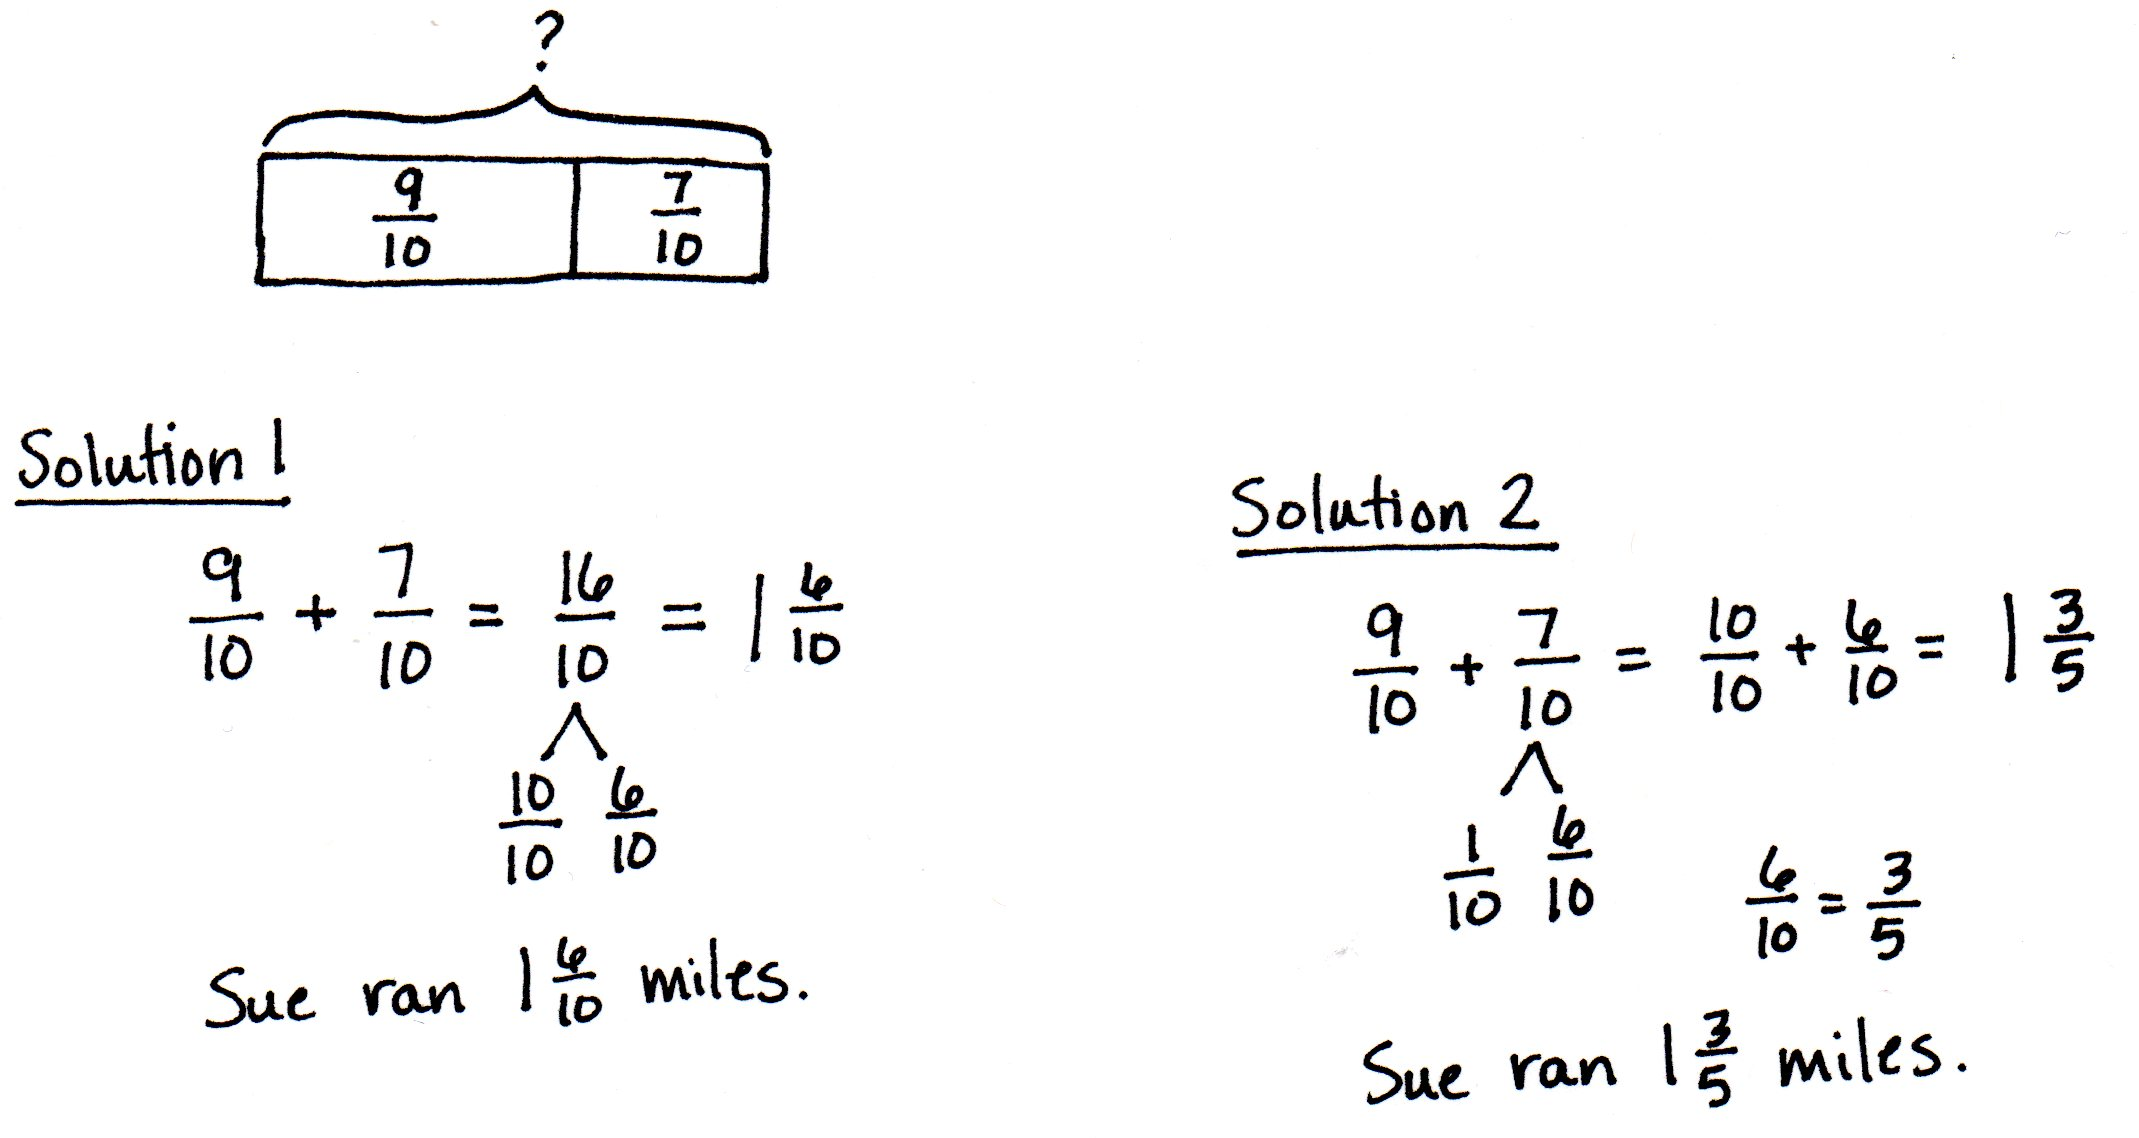 ?
9/10 7/10
Solution 1
9/10 + 7/10 = 16/10 = 1 6/10
10/10 6/10
Sue ran 1 6/10 miles.
Solution 2
9/10 + 7/10 = 10/10 + 6/10 = 1 3/5
1/10 6/10
6/10 = 3/5
Sue ran 1 3/5 miles.